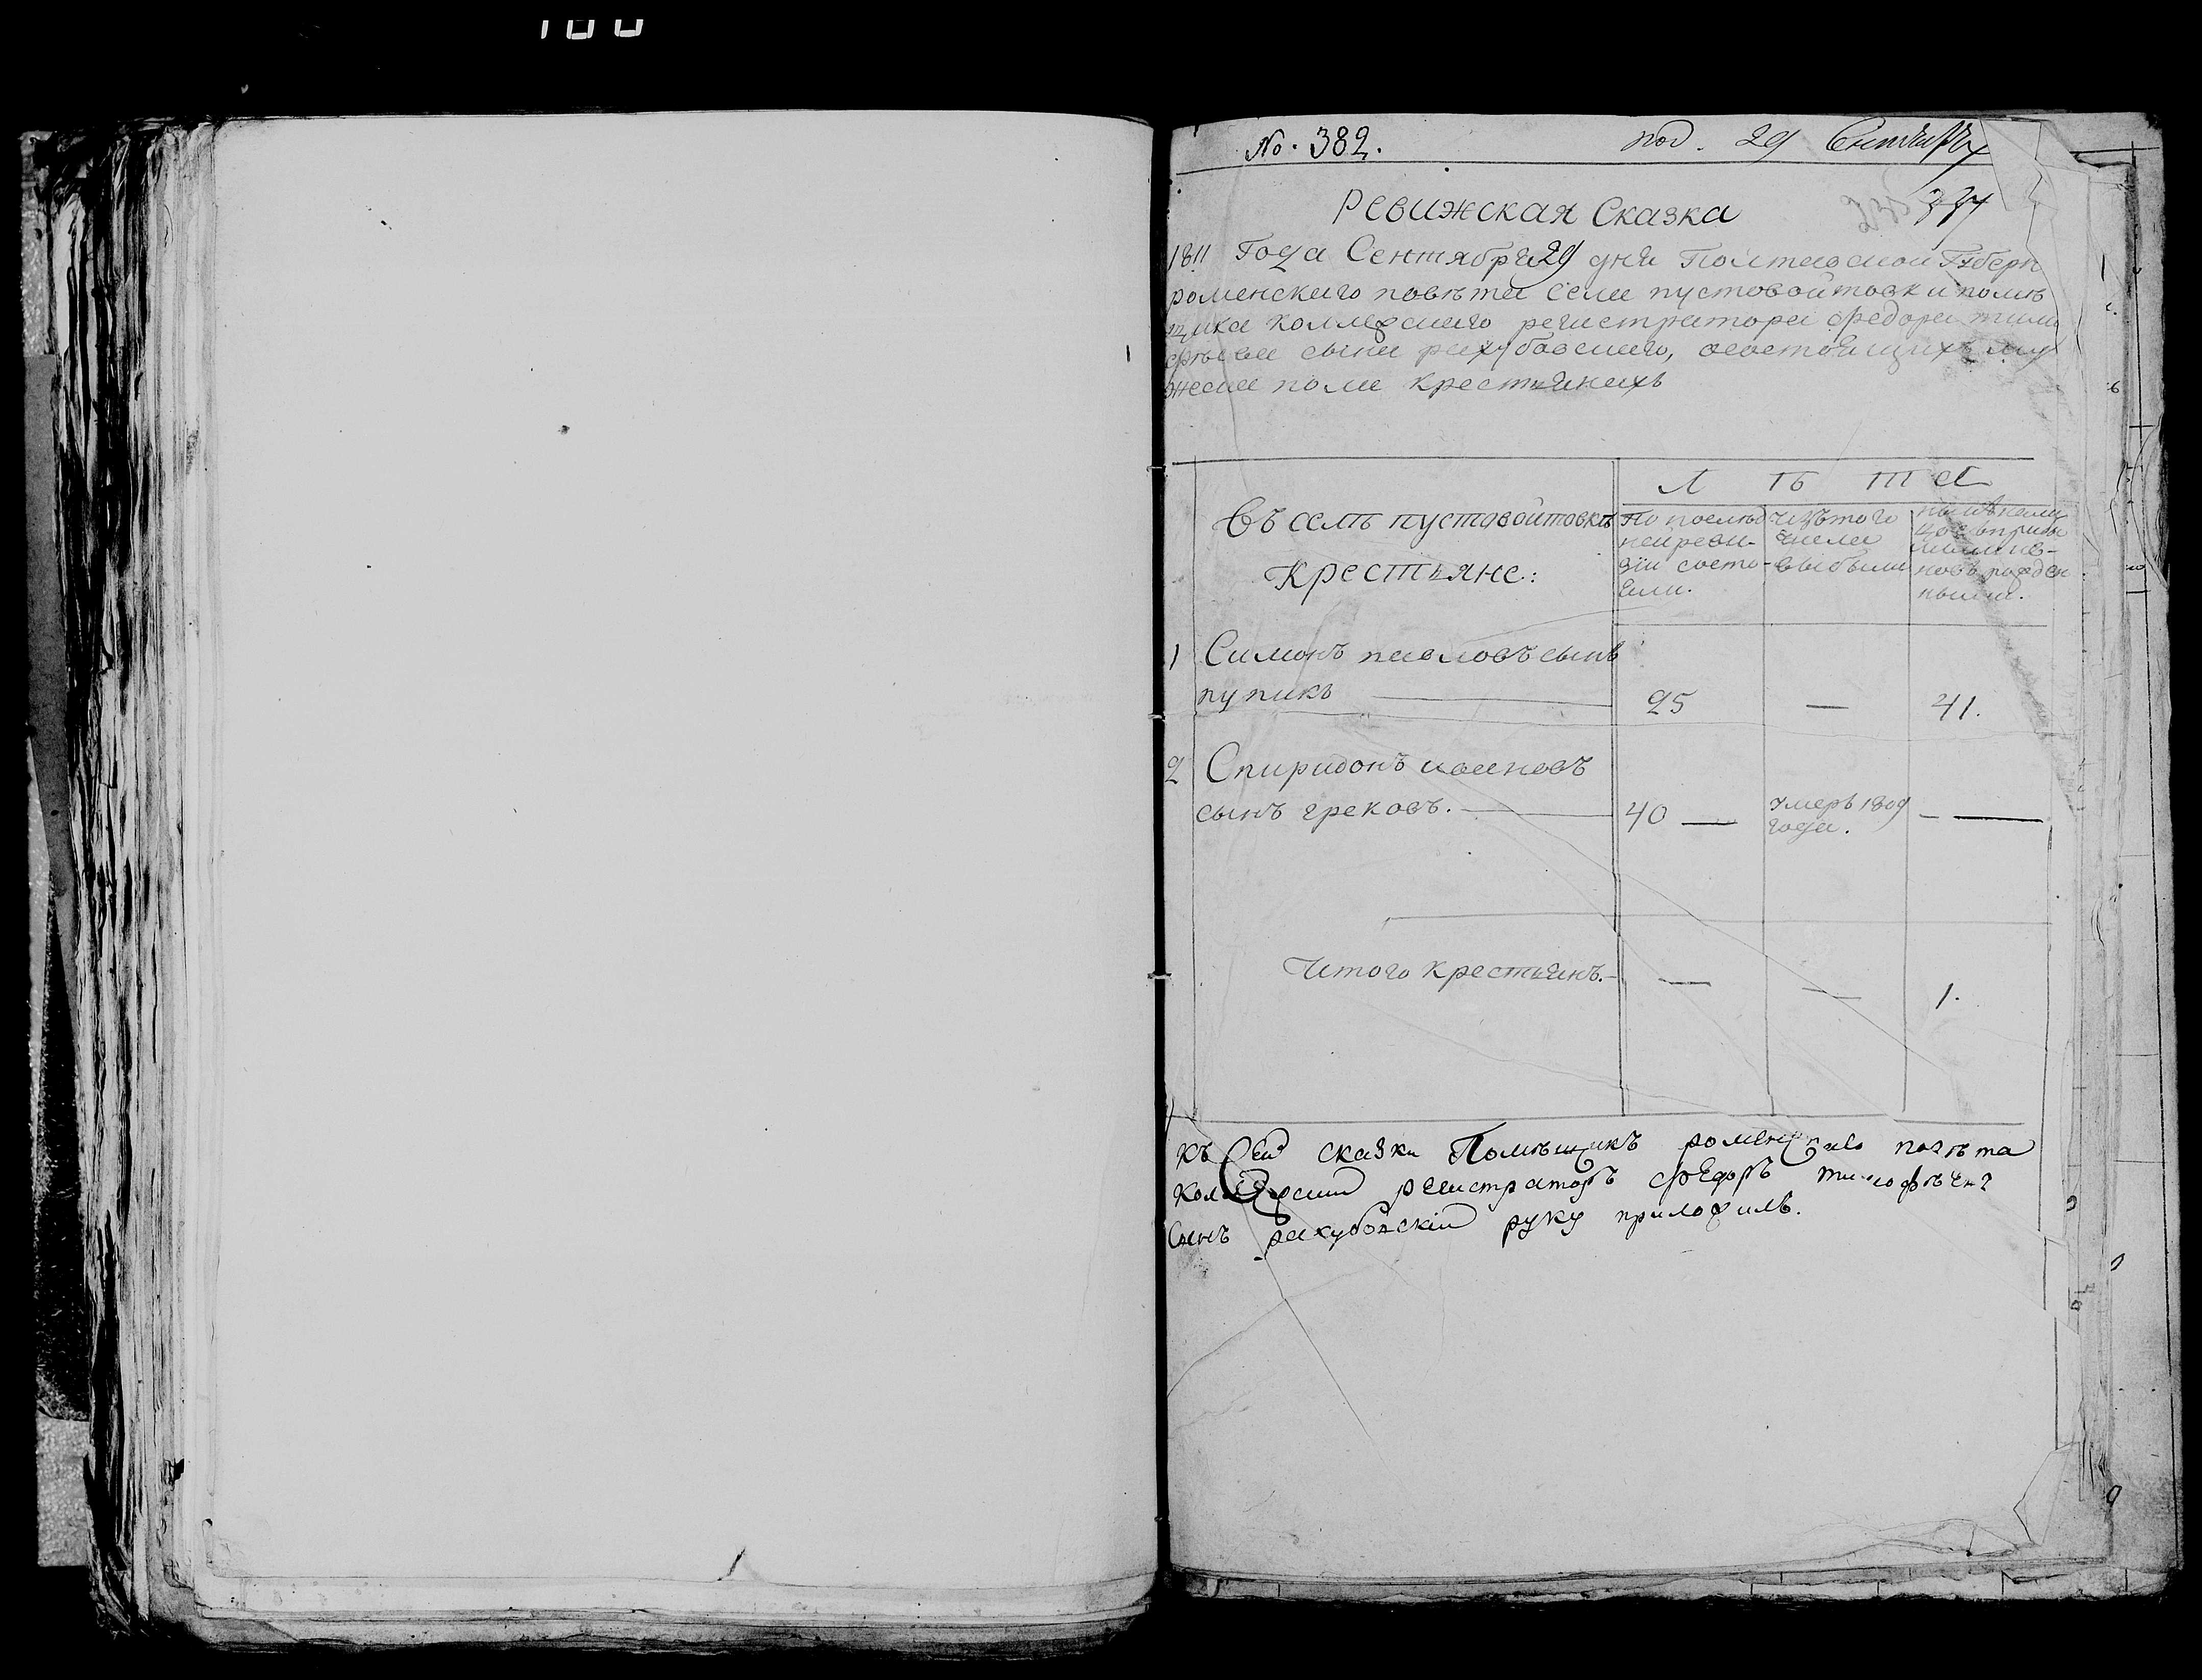 No. 382. под. 29 Сентября
Ревижская Сказка
1811 Года Сентября 29 дня Полтавской Губерн
роменскаго повѣта села пустовойтовки помѣ
щика коллежскаго регистратора федора тимо
фѣева сына рахубовскаго, осостоящихъ му
жеска пола крестьянахъ
Лѣта
Въ селѣ пустовойтовкѣ
Крестьяне:
По послѣд
ней реви-
зіи состо-
яли.
Изъ того
числа
выбыли
нынѣ на ли
цо
новъ рожден
ными.
1 Симонъ павловъ сынъ
пупикъ 25 — 41.
2 Спиридонъ ивановъ
сынъ грековъ. 40 — умеръ 1809
года. —
Итого крестьянъ. — — 1.
Къ сей сказки Помѣщикъ роменскаго повѣта
Колежский регистраторъ федоръ тимофѣевъ
Сынъ рахубовскій руку приложилъ.